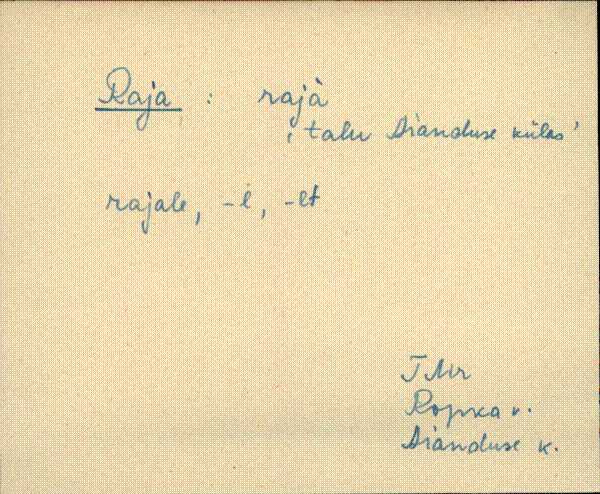 Raja : rajà
‚talu Aianduse külas’
rajale, -l, -lt
T Mr
Ropka v.
Aianduse k.